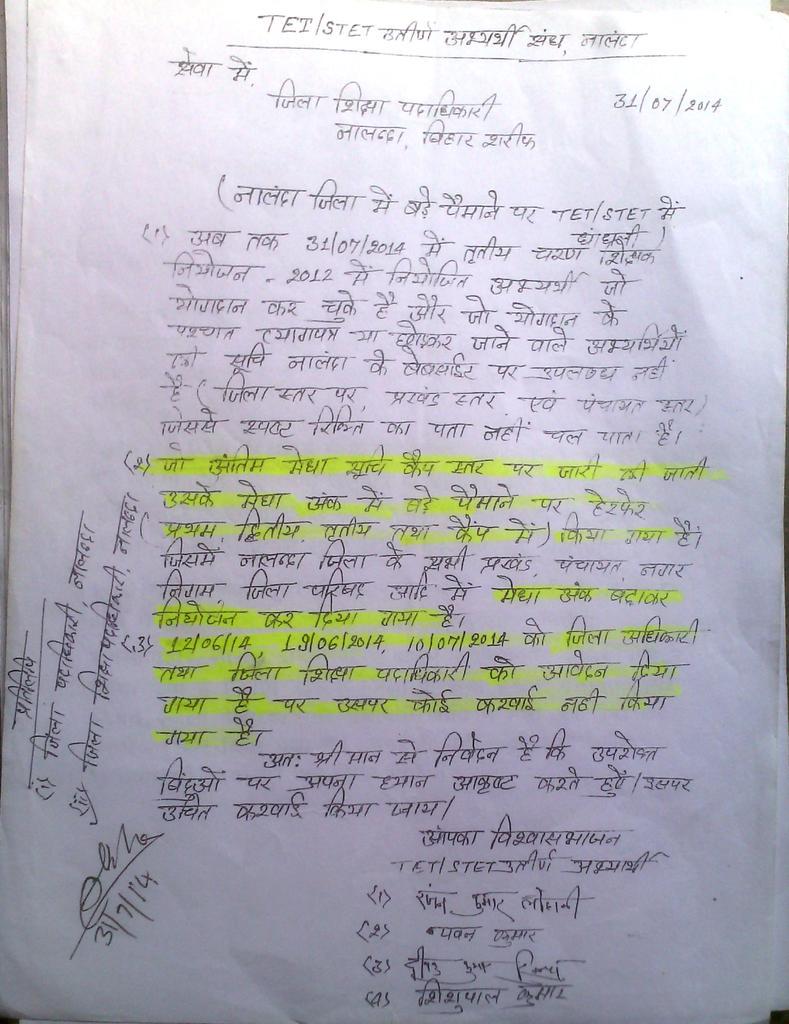 TET/STET उतीर्ण अभ्यर्थी संघ, नालंदा
सेवा में,
जिला शिक्षा पदाधिकारी
31/07/2014
नालन्दा, बिहार शरीफ
(नालंदा जिला में बड़े पैमाने पर TET/STET में
धांधली)
(1) अब तक 31/07/2014 में तृतीय चरण शिक्षक
नियोजन - 2012 में नियोजित अभ्यर्थी जो
योगदान कर चुके है और जो योगदान के
पश्चात त्यागपत्र या छोड़कर जाने वाले अभ्यर्थियों
की सूचि नालंदा के वेबसाईट पर उपलब्ध नहीं
है (जिला स्तर पर, प्रखंड स्तर एवं पंचायत स्तर)
जिससे स्पष्ट रिक्ति का पता नहीं चल पाता है।
(2) जो अंतिम मेधा सूचि कैंप स्तर पर जारी की जाती
उसके मेधा अंक में बड़े पैमाने पर हेरफेर
(प्रथम, द्वितीय, तृतीय तथा कैंप में) किया गया है।
जिसमें नालन्दा जिला के सभी प्रखंड, पंचायत, नगर
निगम, जिला परिषद आदि में मेधा अंक बढ़ाकर
नियोजन कर दिया गया है।
(3) 12/06/14, 19/06/2014, 10/07/2014 को जिला अधिकारी
तथा जिला शिक्षा पदाधिकारी को आवेदन दिया
गया है पर उसपर कोई करवाई नहीं किया
गया है।
अतः श्रीमान से निवेदन है कि उपरोक्त
बिंदुओं पर अपना ध्यान आकृष्ट करते हुऐं/इसपर
उचित करवाई किया जाय/
आपका विश्वासभाजन
TET/STET उतीर्ण अभ्यार्थी
(1) कुमार
(2) पवन कुमार
(3) कुमार
(4) शिशुपाल कुमार
प्रतिलिपि
(i) जिला पदाधिकारी, नालन्दा
(ii) जिला शिक्षा पदाधिकारी, नालन्दा
31/7/14